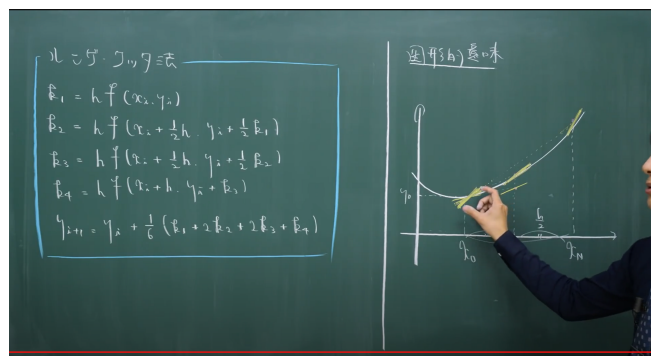 ルンゲ・クッタ法
k₁ = h f(xᵢ, yᵢ)
k₂ = h f(xᵢ + 1/2 h, yᵢ + 1/2 k₁)
k₃ = h f(xᵢ + 1/2 h, yᵢ + 1/2 k₂)
k₄ = h f(xᵢ + h, yᵢ + k₃)
yᵢ₊₁ = yᵢ + 1/6 (k₁ + 2k₂ + 2k₃ + k₄)
図形的意味
y₀
h/2
x₀